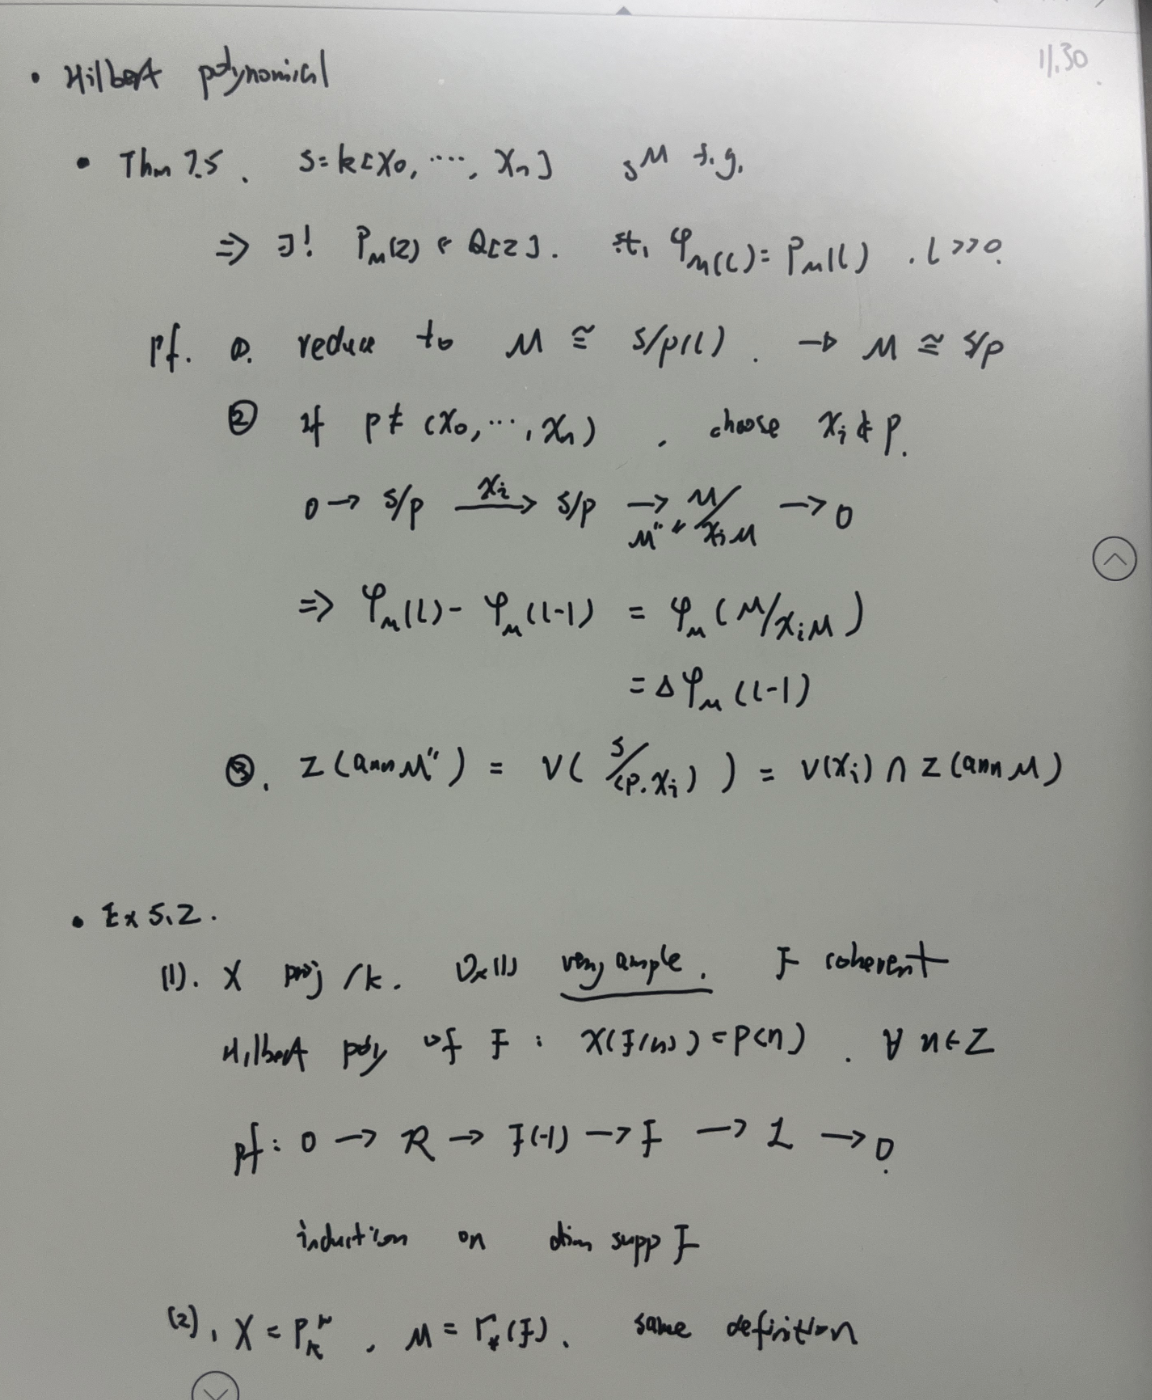 11.30
• Hilbert polynomial
• Thm 7.5. S=k[x₀, ⋯, xₙ] ₛM f.g.
⇒ ∃! P_M(z) ∈ Q[z]. st. φ_M(l) = P_M(l). l>>0.
pf. ①. reduce to M ≅ S/p(l). → M ≅ S/p
② if p≠(x₀, ⋯, xₙ), choose xᵢ∉p.
0 → S/p —xᵢ→ S/p → M/xᵢM → 0
M" =
⇒ φ_M(l) - φ_M(l-1) = φ_M(M/xᵢM)
= Δφ_M(l-1)
③. Z(ann M") = V(S/(p.xᵢ)) = V(xᵢ) ∩ Z(ann M)
• Ex 5.2.
(1). X proj /k. O_X(1) very ample. F coherent
Hilbert poly of F: χ(F(n)) = P(n). ∀ n∈Z
pf: 0 → R → F(-1) → F → L → 0.
induction on dim supp F
(2), X = Pₖʳ, M = Γ_*(F). same definition